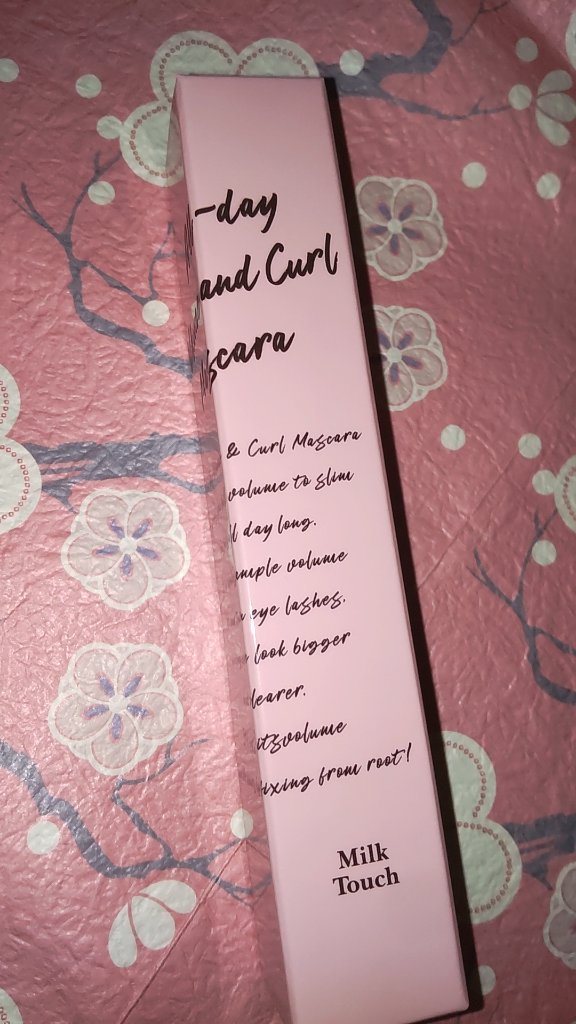 -day
and Curl
scara
& Curl Mascara
volume to slim
day long.
ample volume
eye lashes.
look bigger
learer.
itsvolume
ixing from root!
Milk
Touch